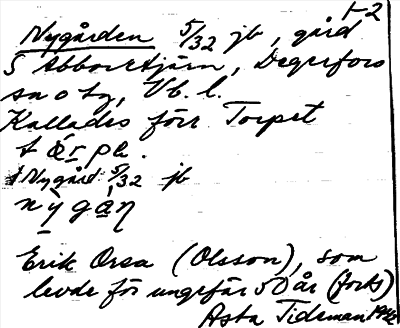 1-2
Nygården 5/32 jb, gård
S Abborrtjärn, Degerfors
sn o tg, Vb. l.
Kallades förr Torpet
tärpe.
Nygård: 5/32 jb
nỳgáη
Erik Orsa (Olsson), som
levde för ungefär 50 år (forts)
Asta Tideman